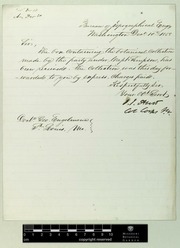 Bureau of Topographical Engs
Washington Dec. 10th 1859
Sir,
The Box containing the botanical collection
made by the party under Capt. Simpson has
been received. The collection was this day for-
warded to you by express. Charges paid.
Respectfully Sir,
Your Obt Servt
Col. Corps
Doct. Geo. Engelmann
St. Louis, Mo